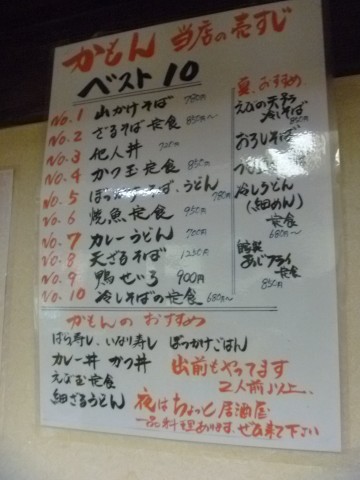 かもん 当店の売すじ
ベスト10
No.1 山かけそば 780円
No.2 ざるそば定食 850円〜
No.3 他人丼 700円
No.4 かつ玉定食 850円
No.5 うどん 780円
No.6 焼魚定食 950円
No.7 カレーうどん 700円
No.8 天ざるそば 1230円
No.9 鴨せいろ 900円
No.10 冷しそばの定食 680円〜
夏のおすすめ
えびの天ぷら
冷しそば
850円
おろしそば
冷しうどん
(細めん)
定食
680円〜
特製
あじフライ
定食
850円
かもんのおすすめ
ばら寿し、いなり寿し ぼっかけごはん
カレー丼 かつ丼
えび玉定食
細ざるうどん
出前もやってます
2人前以上、
夜はちょっと居酒屋
一品料理あります、ぜひ来て下さい